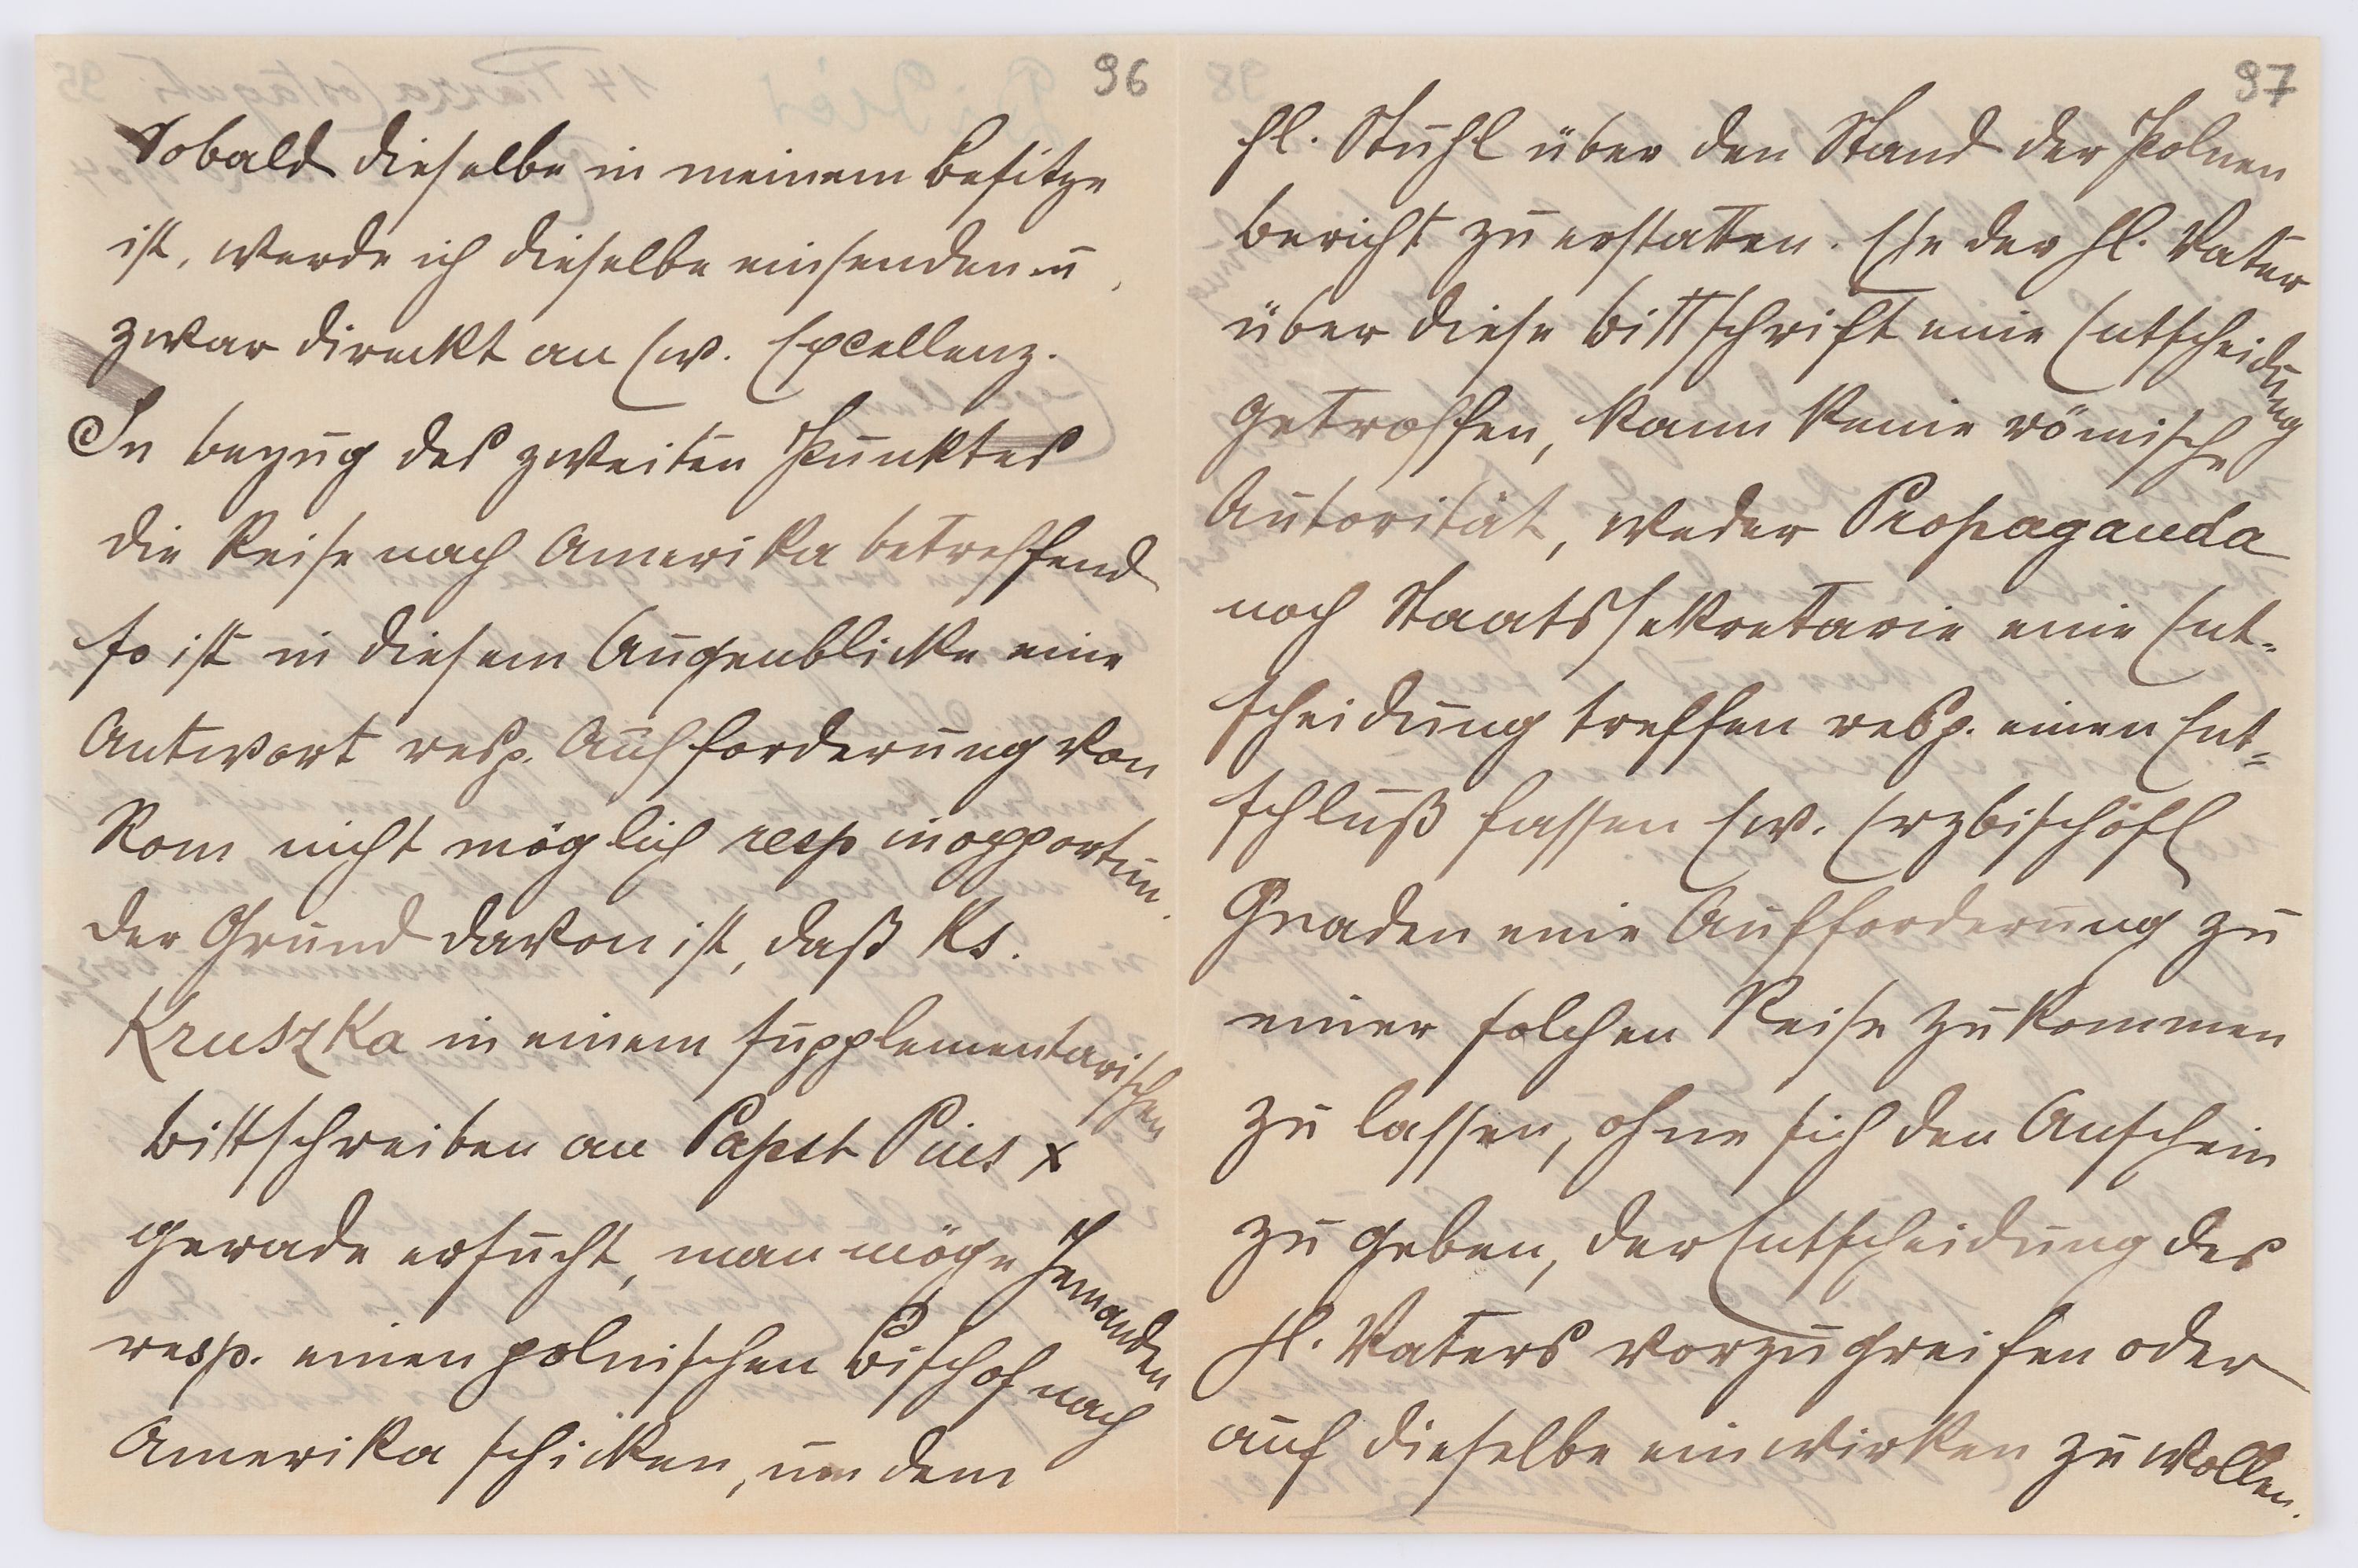 96
Sobald dieselbe in meinem Besitze
ist, werde ich dieselbe einsenden u
zwar direckt an Ew. Excellenz.
In bezug des zweiten Punktes
die Reise nach Amerika betreffend
so ist in diesem Augenblicke eine
Antwort resp. Aufforderung von
Rom nicht möglich resp inopportun.
der Grund davon ist, daß Ks.
Kruszka in einem supplementarischen
Bittschreiben an Papst Pius X
gerade ersucht, man möge Jemanden
resp. einen polnischen Bischof nach
Amerika schicken, um dem
97
hl. Stuhl über den Stand der Polen
bericht zu erstatten. Ehe der hl. Vater
über diese Bittschrift eine Entscheidung
getroffen, kann keine römische
Autorität, weder Propaganda
noch Staatssekretarie eine Ent-
scheidung treffen resp. einen Ent-
schluß fassen Ew. Erzbischöfl
Gnaden eine Aufforderung zu
einer solchen Reise zukommen
zu lassen, ohne sich den Anschein
zu geben, der Entscheidung des
hl. Vaters vorzugreifen oder
auf dieselbe einwirken zu wollen.